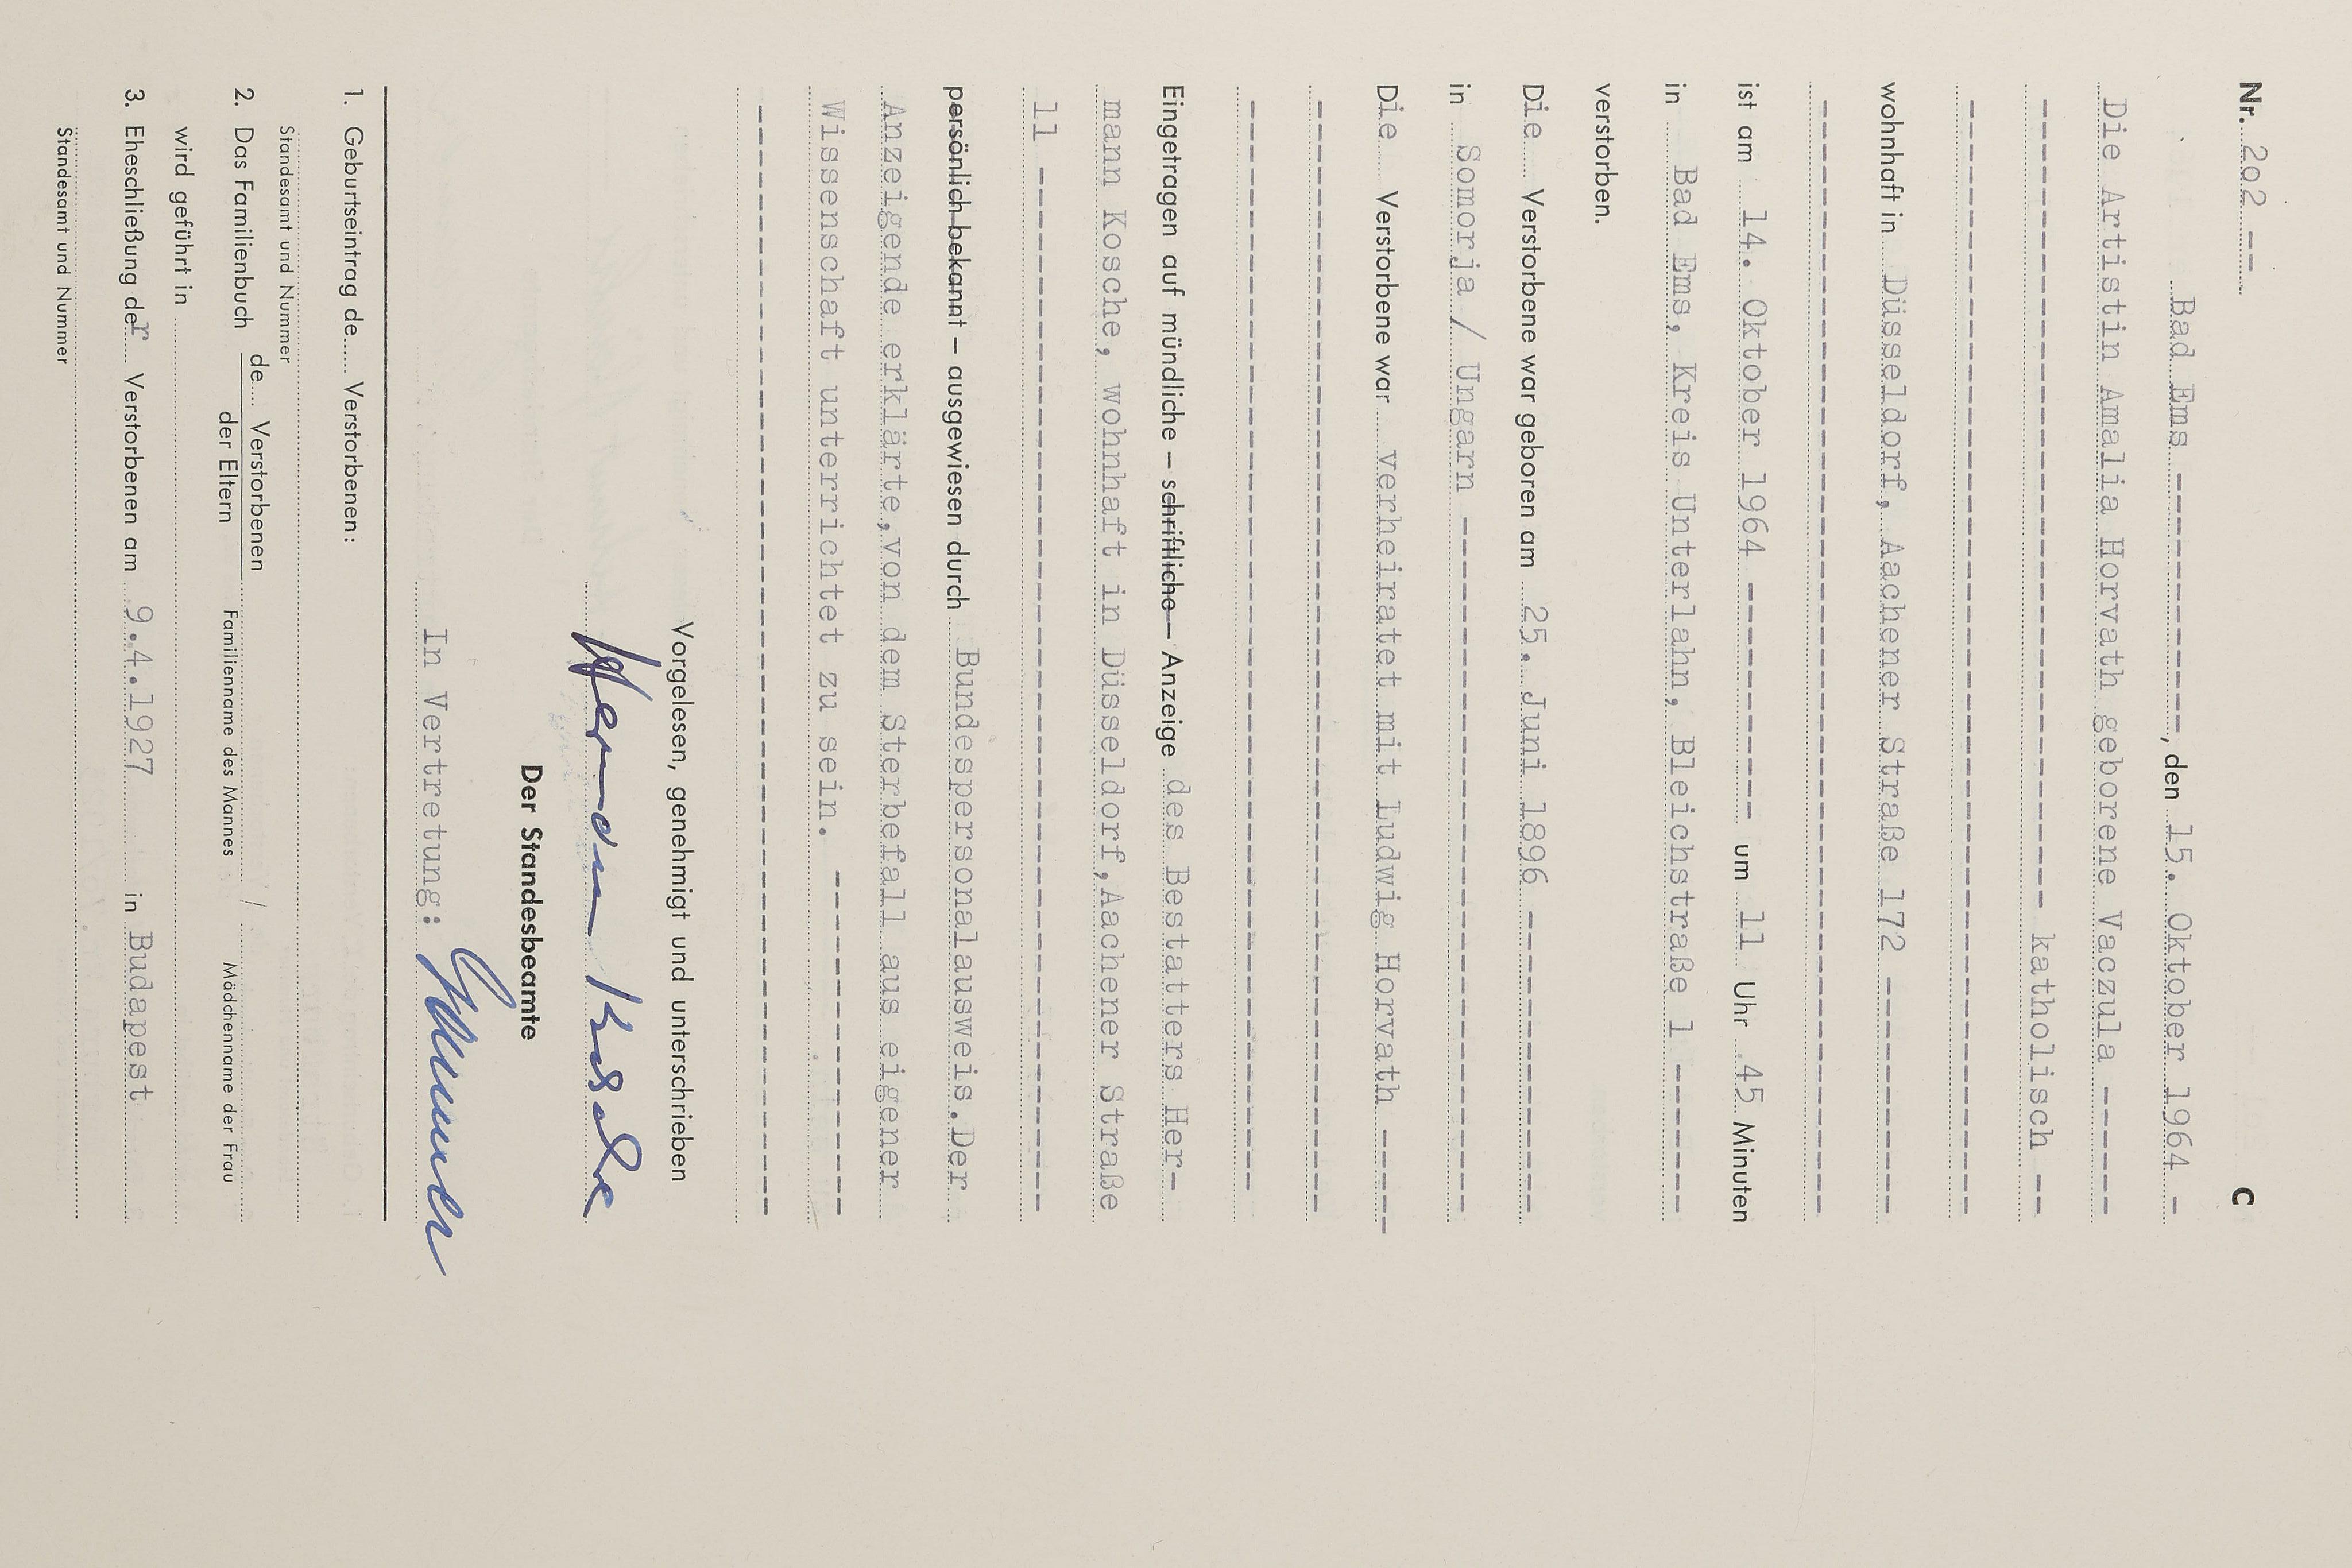 Nr. 2o2 --
C
Bad Ems ----------------, den 15. Oktober 1964 -
Die Artistin Amalia Horvath geborene Vaczula ------
katholisch --
wohnhaft in Düsseldorf, Aachener Straße 172 ----------
ist am 14. Oktober 1964 ---------- um 11 Uhr 45 Minuten
in Bad Ems, Kreis Unterlahn, Bleichstraße 1 -------
verstorben.
Die Verstorbene war geboren am 25. Juni 1896 --------------
in Somorja / Ungarn --------------------------------
Die Verstorbene war verheiratet mit Ludwig Horvath -----
Eingetragen auf mündliche – schriftliche – Anzeige des Bestatters Her-
mann Kosche, wohnhaft in Düsseldorf,Aachener Straße
11 ------------------------------------------------
persönlich bekannt – ausgewiesen durch Bundespersonalausweis.Der
Anzeigende erklärte,von dem Sterbefall aus eigener
Wissenschaft unterrichtet zu sein. ----------------
Vorgelesen, genehmigt und unterschrieben
Hermann Kosche
Der Standesbeamte
In Vertretung:
1. Geburtseintrag de..... Verstorbenen:
Standesamt und Nummer
2. Das Familienbuch de.... Verstorbenen / der Eltern
Familienname des Mannes Mädchenname der Frau
wird geführt in
3. Eheschließung der Verstorbenen am 9.4.1927 in Budapest
Standesamt und Nummer